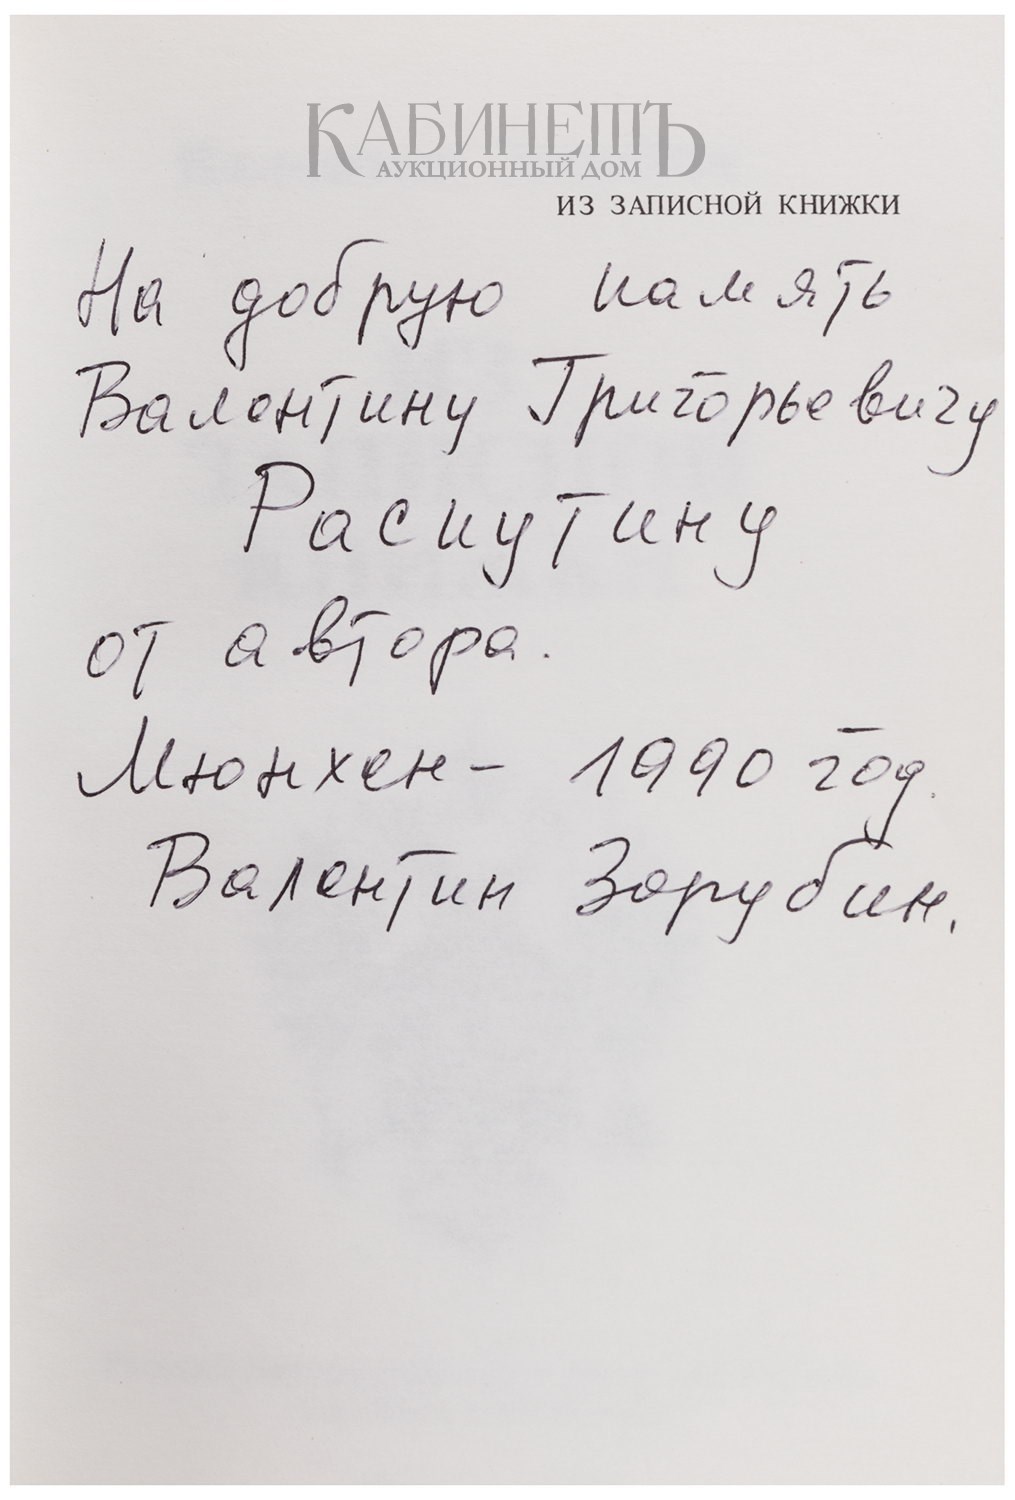 КАБИНЕТЪ
АУКЦИОННЫЙ ДОМ
ИЗ ЗАПИСНОЙ КНИЖКИ
На добрую память
Валентину Григорьевичу
Распутину
от автора.
Мюнхен - 1990 год.
Валентин Зарубин.